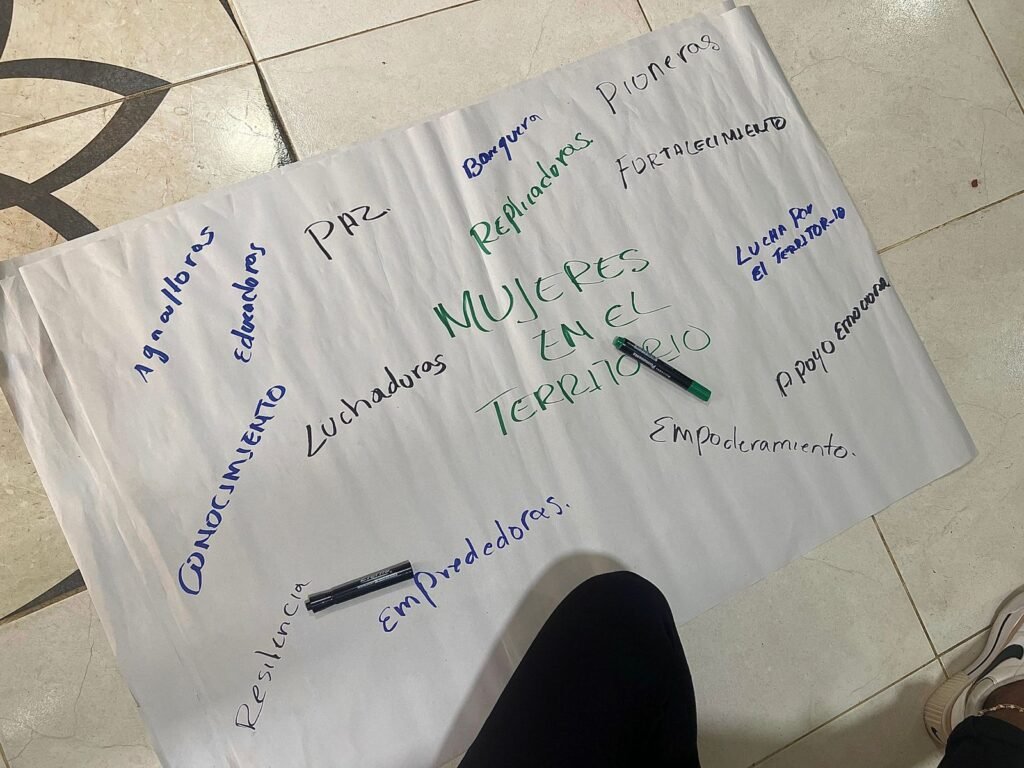 Pioneras
Banquera
FORTALECIMIENTO
Replicadoras.
PAZ.
LUCHA POR
El TERRITORIO
Agricultoras
Educadoras
MUJERES
EN EL
TERRITORIO
APOYO EMOCIONAL
Luchadoras
CONOCIMIENTO
Empoderamiento.
Emprededoras.
Resilencia